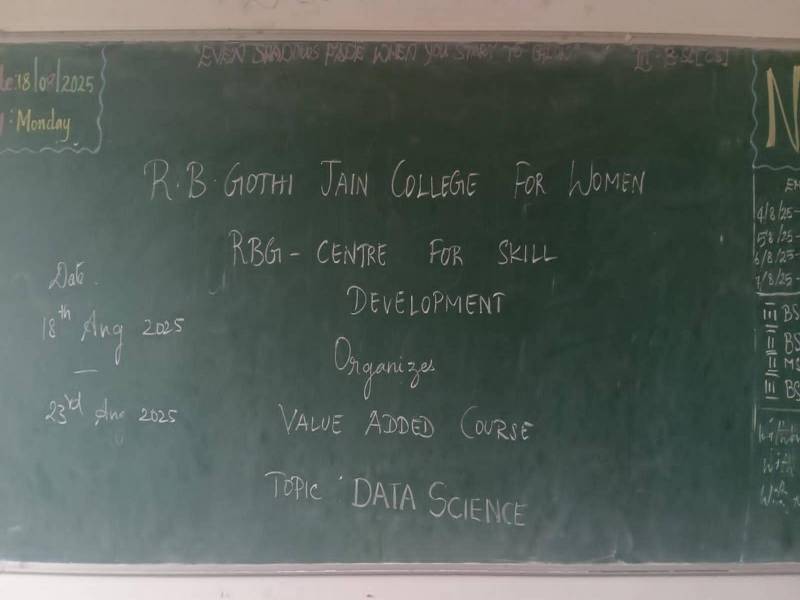 EVEN SHADOWS FADE WHEN YOU START TO GLOW
III - B.SC[CS]
te:18/08/2025
: Monday
R.B. GOTHI JAIN COLLEGE FOR WOMEN
RBG - CENTRE FOR SKILL
DEVELOPMENT
Organizes
VALUE ADDED COURSE
TOPIC : DATA SCIENCE
Date.
18th Aug 2025
—
23rd Aug 2025
N
4/8/25-
5/8/25-
6/8/25-
7/8/25-
III BS
II BS
II MS
III BS